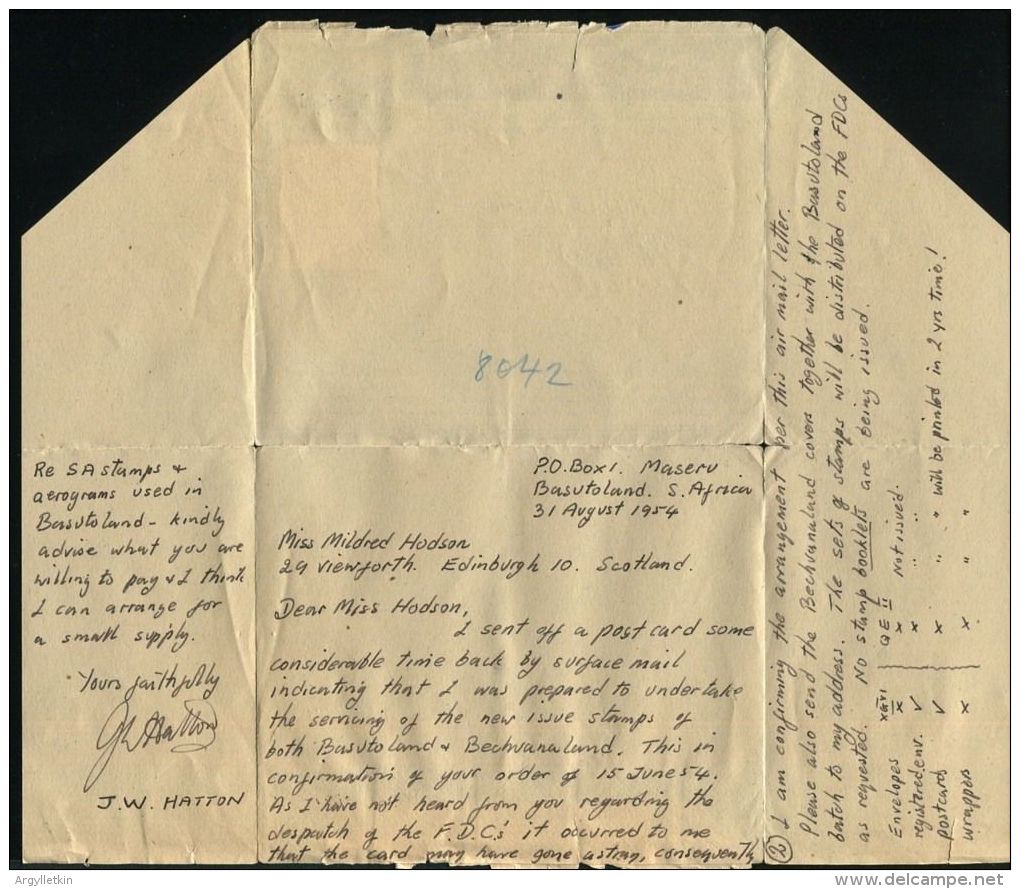 8042
P.O.Box 1. Maseru
Basutoland. S. Africa
31 August 1954
Miss Mildred Hodson
29 Viewforth. Edinburgh 10. Scotland.
Dear Miss Hodson,
I sent off a post card some
considerable time back by surface mail
indicating that I was prepared to undertake
the servicing of the new issue stamps of
both Basutoland & Bechuanaland. This in
confirmation of your order of 15 June 54.
As I have not heard from you regarding the
despatch of the F.D.C.'s it occurred to me
that the card may have gone astray, consequently
(2) I am confirming the arrangement per this air mail letter.
Please also send the Bechuanaland covers together with the Basutoland
batch to my address. The sets of stamps will be distributed on the FDCs
as requested. No stamp booklets are being issued.
QE II
Envelopes x x Not issued.
registered env. ✓ x " "
postcards ✓ x " " will be printed in 2 yrs time!
wrappers x x " "
Re SA stamps &
aerograms used in
Basutoland - kindly
advise what you are
willing to pay & I think
I can arrange for
a small supply.
Yours faithfully
JW Hatton
J.W. HATTON
Argylletkin
delcampe.net